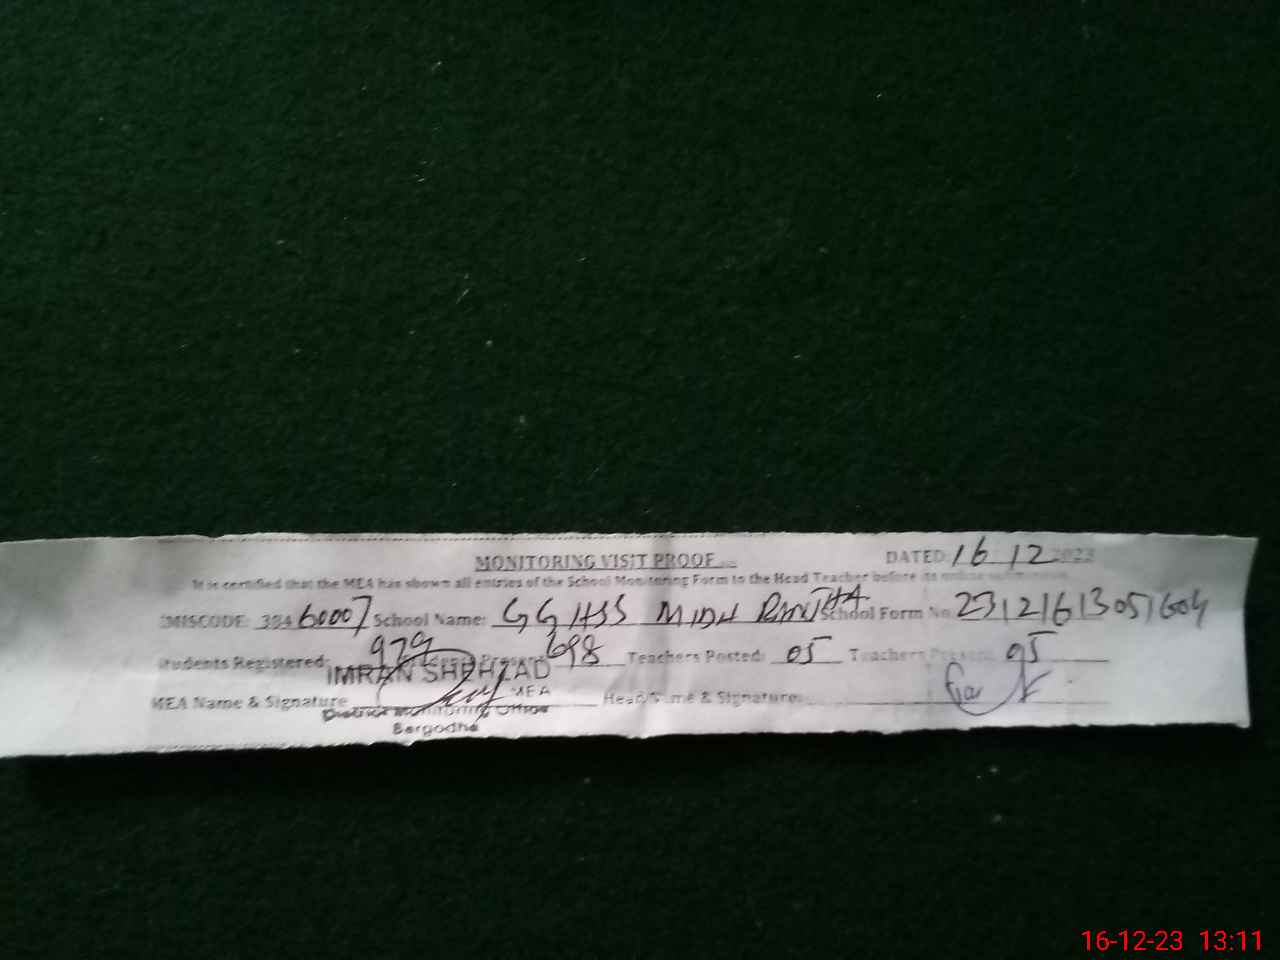 MONITORING VISIT PROOF DATED: 16 12 2023
It is certified that the MEA has shown all entries of the School Monitoring Form to the Head Teacher before its online submission
EMISCODE: 38460007 School Name: GGHSS MIDH RANJHA School Form No 23121613051604
Students Registered: 979 698 Teachers Posted: 05 Teachers Present 05
IMRAN SHEHZAD
MEA Name & Signature MEA Head Name & Signature:
District Monitoring Office
Sargodha
16-12-23 13:11